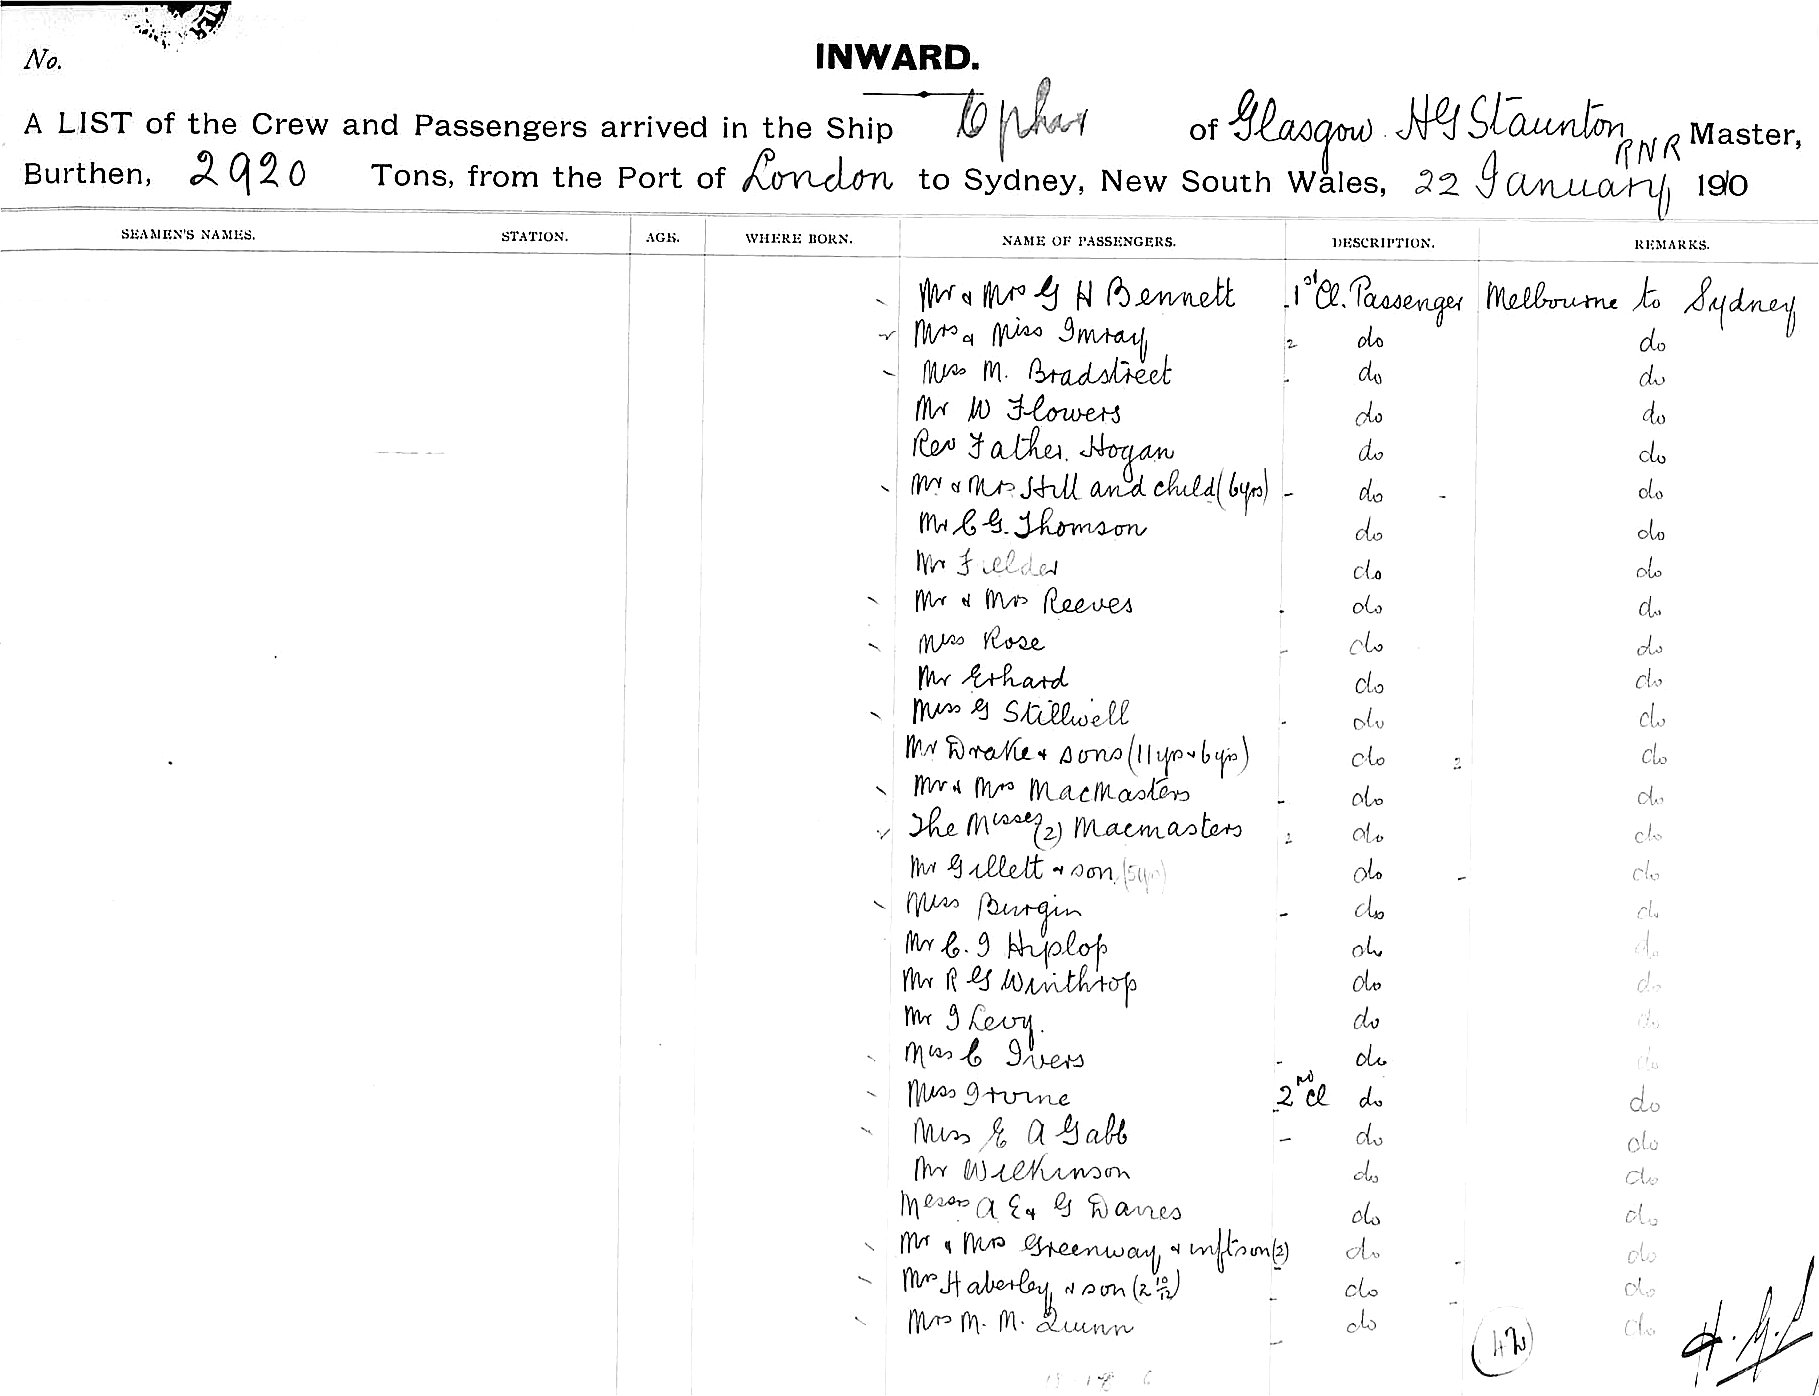 No.
INWARD.
A LIST of the Crew and Passengers arrived in the Ship Ophir of Glasgow HG Staunton RNR Master,
Burthen, 2920 Tons, from the Port of London to Sydney, New South Wales, 22 January 190
SEAMEN'S NAMES. STATION. AGE. WHERE BORN. NAME OF PASSENGERS. DESCRIPTION. REMARKS.
Mr & Mrs G H Bennett 1st Cl. Passenger Melbourne to Sydney
Mrs & Miss Imray 2 do do
Miss M. Bradstreet do do
Mr W Flowers do do
Rev Father. Hogan do do
Mr & Mrs Hill and child (6yrs) - do - do
Mr C G. Thomson do do
Mr Fielder do do
Mr & Mrs Reeves do do
Miss Rose do do
Mr Erhard do do
Miss G Stillwell do do
Mr Drake & sons (11 yrs & 6 yrs) do 2 do
Mr & Mrs MacMasters - do do
The Misses (2) Macmasters 2 do do
Mr Gillett & son (5yrs) do - do
Miss Burgin - do do
Mr C. J Hyslop do do
Mr R G Winthrop do do
Mr J Levy. do do
Miss C Ivers - do do
Miss Irvine 2nd Cl do do
Miss E A Gabb - do do
Mr Wilkinson do do
Messrs A E & G Davies do do
Mr & Mrs Greenway & inft son (2) do do
Mrs Haberley & son (2 10/12) do do
Mrs M. M. Quinn do do
42